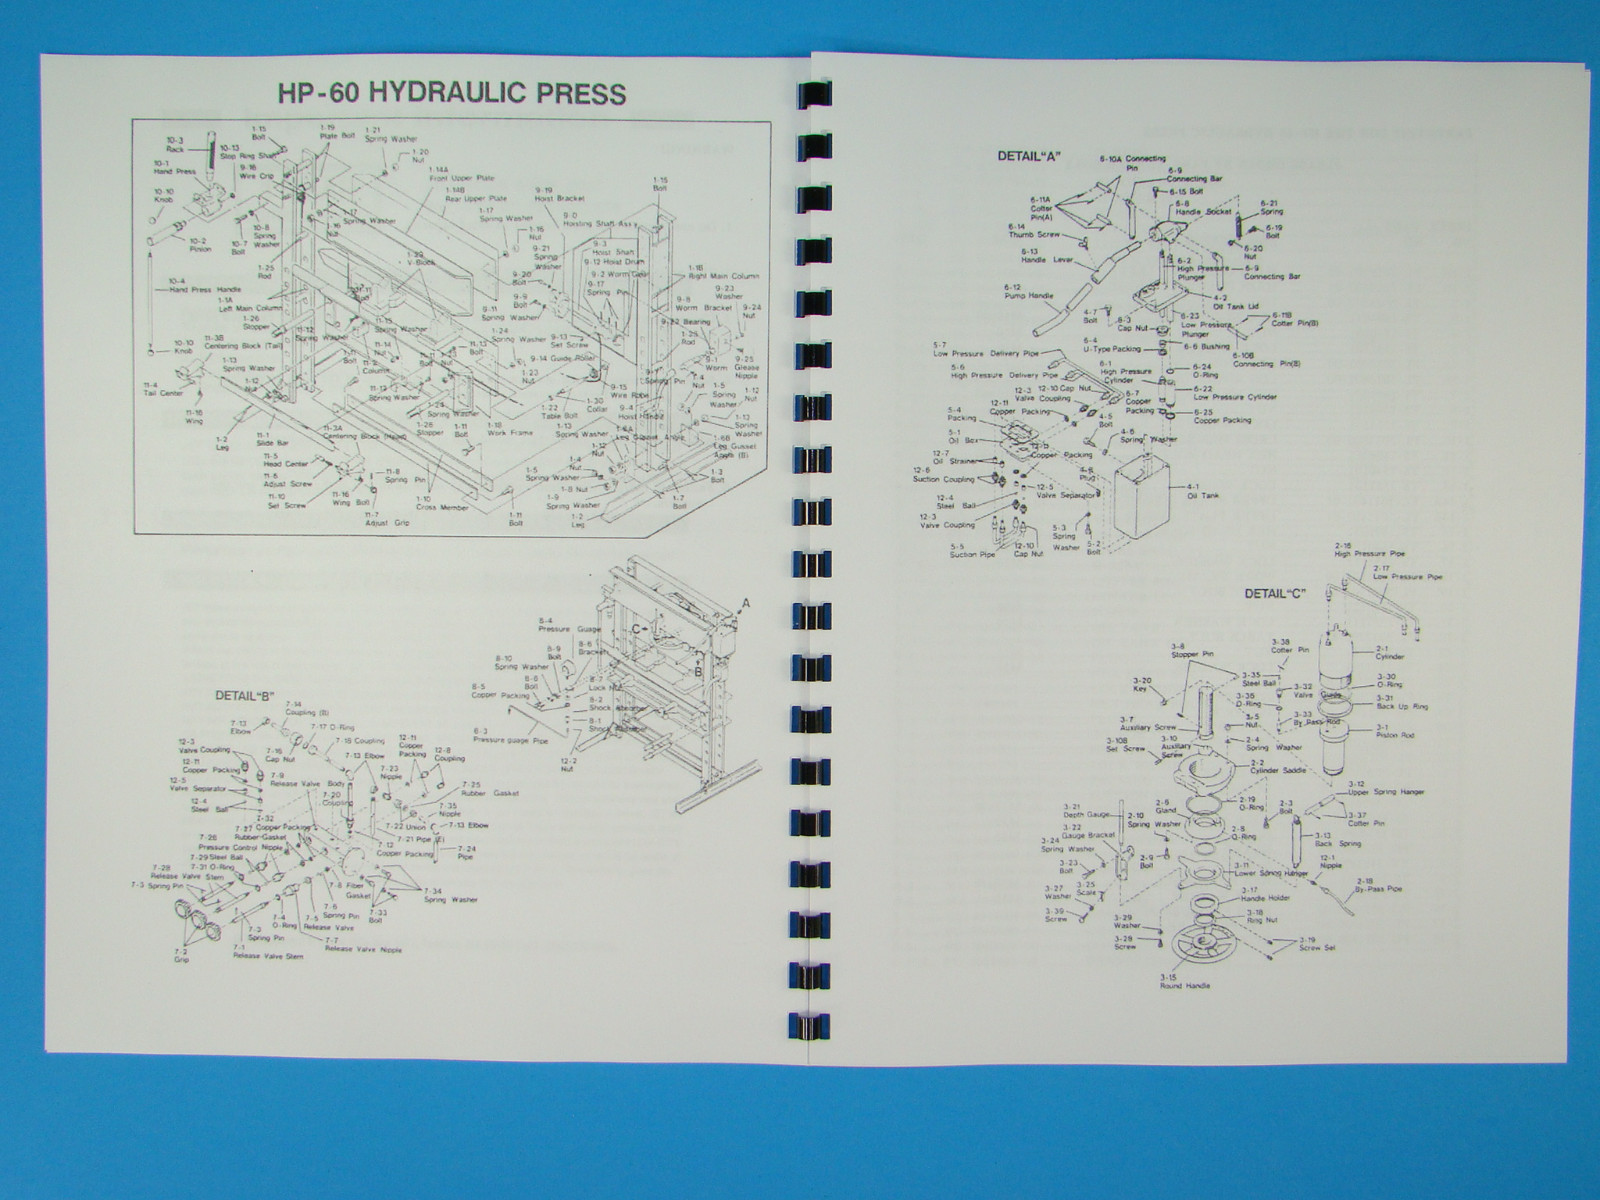 HP-60 HYDRAULIC PRESS
10-3
Rack
1-15
Bolt
1-19
Plate Bolt
1-21
Spring Washer
10-13
Stop Ring Shaft
1-20
Nut
10-1
Hand Press
9-18
Wire Crip
1-14A
Front Upper Plate
1-14B
Rear Upper Plate
9-19
Hoist Bracket
1-15
Bolt
10-10
Knob
1-17
Spring Washer
1-17
Spring Washer
9-0
Hoisting Shaft Ass'y
1-16
Nut
1-16
Nut
10-8
Spring
Washer
10-2
Pinion
10-7
Bolt
9-21
Spring
Washer
9-3
Hoist Shaft
9-12 Hoist Drum
9-2 Worm Gear
9-17
Spring Pin
1-29
V-Block
1-25
Rod
9-20
Bolt
1-1B
Right Main Column
10-4
Hand Press Handle
9-9
Bolt
9-23
Washer
1-1A
Left Main Column
9-8
Worm Bracket
9-24
Nut
9-11
Spring Washer
1-26
Stopper
9-22 Bearing
11-12
Spring Washer
11-15
Spring Washer
1-24
Spring Washer
9-13
Set Screw
10-10
Knob
11-3B
Centering Block (Tail)
11-14
Nut
11-13
Bolt
9-14 Guide Roller
9-1
Worm
9-25
Grease
Nipple
1-13
Spring Washer
11-2
Column
1-23
Nut
11-4
Tail Center
1-12
Nut
11-12
Spring Washer
9-15
Wire Rope
1-4
Nut
1-5
Spring
Washer
1-12
Nut
1-30
Collar
11-16
Wing
1-24
Spring Washer
1-22
Table Bolt
9-4
Hoist Handle
1-13
Spring
Washer
1-2
Leg
11-1
Slide Bar
11-3A
Centering Block (Head)
1-28
Stopper
1-11
Bolt
1-18
Work Frame
1-13
Spring Washer
1-6A
Leg Gusset Angle
1-6B
Leg Gusset
Angle (B)
11-5
Head Center
1-12
Nut
11-6
Adjust Screw
11-8
Spring Pin
1-4
Nut
1-5
Spring Washer
1-3
Bolt
11-10
Set Screw
11-16
Wing Bolt
1-10
Cross Member
1-8 Nut
1-9
Spring Washer
1-7
Bolt
11-7
Adjust Grip
1-11
Bolt
1-2
Leg
A
C
B
8-4
Pressure Guage
8-6
Bracket
8-9
Bolt
8-10
Spring Washer
8-8
Bolt
8-7
Lock Nut
8-5
Copper Packing
8-2
Shock Absorber
8-1
Shock Absorber
8-3
Pressure guage Pipe
12-2
Nut
DETAIL"B"
7-14
Coupling (B)
7-13
Elbow
7-17 O-Ring
7-18 Coupling
12-3
Valve Coupling
7-16
Cap Nut
7-13 Elbow
12-11
Copper
Packing
12-8
Coupling
12-11
Copper Packing
7-23
Nipple
12-5
Valve Separator
7-9
Release Valve Body
7-25
Rubber Gasket
12-4
Steel Ball
7-20
Coupling
7-35
Nipple
7-32
Copper Packing
7-22 Union
7-13 Elbow
7-27
Rubber-Gasket
7-21 Pipe
7-26
Pressure Control Nipple
7-12
Copper Packing
7-24
Pipe
7-29 Steel Ball
7-28
Release Valve Stem
7-31 O-Ring
7-3 Spring Pin
7-8 Fiber
Gasket
7-34
Spring Washer
7-6
Spring Pin
7-33
Bolt
7-4
O-Ring
7-5
Release Valve
7-3
Spring Pin
7-7
Release Valve Nipple
7-2
Grip
7-1
Release Valve Stem
DETAIL"A"
6-10A Connecting
Pin
6-9
Connecting Bar
6-15 Bolt
6-11A
Cotter
Pin(A)
6-8
Handle Socket
6-21
Spring
6-14
Thumb Screw
6-19
Bolt
6-13
Handle Lever
6-20
Nut
6-2
High Pressure
Plunger
6-9
Connecting Bar
6-12
Pump Handle
4-2
Oil Tank Lid
4-7
Bolt
6-3
Cap Nut
6-23
Low Pressure
Plunger
6-11B
Cotter Pin(B)
5-7
Low Pressure Delivery Pipe
6-4
U-Type Packing
6-6 Bushing
6-10B
Connecting Pin(B)
5-6
High Pressure Delivery Pipe
6-1
High Pressure
Cylinder
6-24
O-Ring
12-3
Valve Coupling
12-10 Cap Nut
6-22
Low Pressure Cylinder
6-7
Copper
Packing
5-4
Packing
12-11
Copper Packing
4-5
Bolt
6-25
Copper Packing
5-1
Oil Box
4-6
Spring Washer
12-7
Oil Strainer
Copper Packing
12-6
Suction Coupling
Plug
12-5
Valve Separator
4-1
Oil Tank
12-4
Steel Ball
12-3
Valve Coupling
5-3
Spring
Washer
5-5
Suction Pipe
12-10
Cap Nut
5-2
Bolt
DETAIL"C"
2-16
High Pressure Pipe
2-17
Low Pressure Pipe
3-38
Cotter Pin
3-8
Stopper Pin
2-1
Cylinder
3-20
Key
3-35
Steel Ball
3-30
O-Ring
3-36
O-Ring
3-32
Valve Guide
3-31
Back Up Ring
3-7
Auxiliary Screw
2-5
Nut
3-33
By Pass Rod
3-1
Piston Rod
3-10B
Set Screw
3-10
Auxiliary
Screw
2-4
Spring Washer
2-2
Cylinder Saddle
3-12
Upper Spring Hanger
3-21
Depth Gauge
2-6
Gland
2-19
O-Ring
2-3
Bolt
3-37
Cotter Pin
2-10
Spring Washer
3-22
Gauge Bracket
2-8
O-Ring
3-13
Back Spring
3-24
Spring Washer
2-9
Bolt
3-11
Lower Spring Hanger
12-1
Nipple
3-23
Bolt
2-18
By-Pass Pipe
3-27
Washer
3-25
Scale
3-17
Handle Holder
3-39
Screw
3-29
Washer
3-18
Ring Nut
3-28
Screw
3-19
Screw Set
3-15
Round Handle